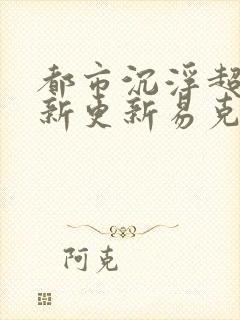 都市沉浮超
新更新易克
阿克